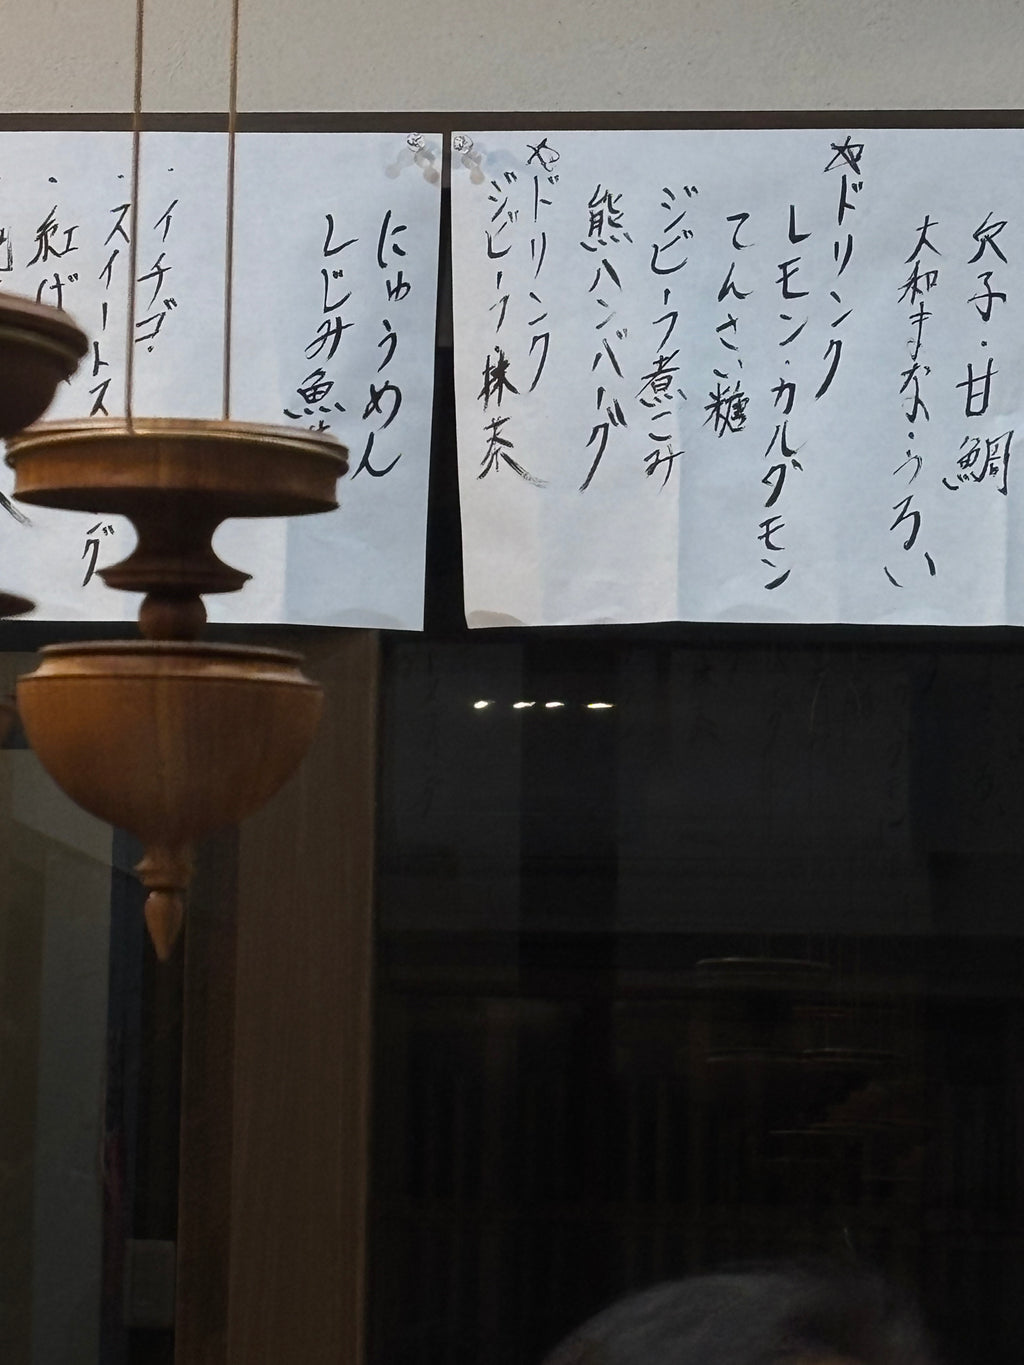 穴子・甘鯛
大和まな・うるい
ドリンク
レモン・カルダモン
てんさい糖
ジビーフ煮こみ
熊ハンバーグ
ドリンク
ジビーフ・抹茶
にゅうめん
しじみ魚
・イチゴ・
・スイートス
・紅